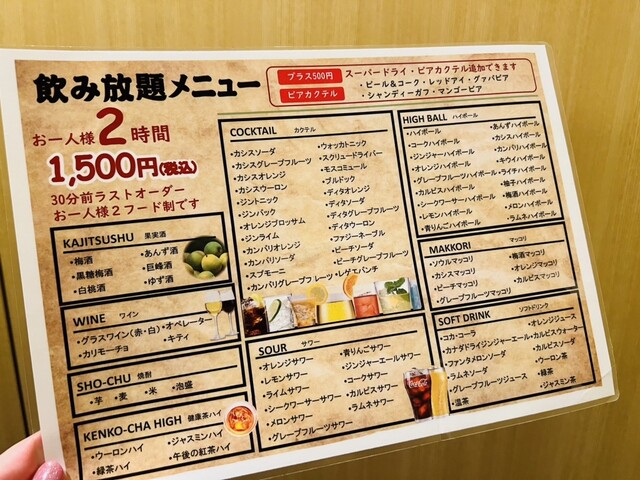 飲み放題メニュー
お一人様2時間
1,500円(税込)
30分前ラストオーダー
お一人様2フード制です
プラス500円
ビアカクテル
スーパードライ・ビアカクテル追加できます
・ビール&コーク・レッドアイ・グァバビア
・シャンディーガフ・マンゴービア
KAJITSUSHU 果実酒
・梅酒 ・あんず酒
・黒糖梅酒 ・巨峰酒
・白桃酒 ・ゆず酒
WINE ワイン
・グラスワイン(赤・白)・オペレーター
・カリモーチョ ・キティ
SHO-CHU 焼酎
・芋 ・麦 ・米 ・泡盛
KENKO-CHA HIGH 健康茶ハイ
・ウーロンハイ ・ジャスミンハイ
・緑茶ハイ ・午後の紅茶ハイ
COCKTAIL カクテル
・カシスソーダ ・ウォッカトニック
・カシスグレープフルーツ ・スクリュードライバー
・カシスオレンジ ・モスコミュール
・カシスウーロン ・ブルドック
・ジントニック ・ディタオレンジ
・ジンバック ・ディタソーダ
・オレンジブロッサム ・ディタグレープフルーツ
・ジンライム ・ディタウーロン
・カンパリオレンジ ・ファジーネーブル
・カンパリソーダ ・ピーチソーダ
・スプモーニ ・ピーチグレープフルーツ
・カンパリグレープフルーツ ・レゲエパンチ
SOUR サワー
・オレンジサワー ・青りんごサワー
・レモンサワー ・ジンジャーエールサワー
・ライムサワー ・コークサワー
・シークワーサーサワー ・カルピスサワー
・メロンサワー ・ラムネサワー
・グレープフルーツサワー
HIGH BALL ハイボール
・ハイボール ・あんずハイボール
・コークハイボール ・カシスハイボール
・ジンジャーハイボール ・カンパリハイボール
・オレンジハイボール ・キウイハイボール
・グレープフルーツハイボール ・ライチハイボール
・カルピスハイボール ・柚子ハイボール
・シークワーサーハイボール ・梅酒ハイボール
・レモンハイボール ・メロンハイボール
・青りんごハイボール ・ラムネハイボール
MAKKORI マッコリ
・ソウルマッコリ ・梅酒マッコリ
・カシスマッコリ ・オレンジマッコリ
・ピーチマッコリ ・カルピスマッコリ
・グレープフルーツマッコリ
SOFT DRINK ソフトドリンク
・コカ・コーラ ・オレンジジュース
・カナダドライジンジャーエール ・カルピスウォーター
・ファンタメロンソーダ ・カルピスソーダ
・ラムネソーダ ・ウーロン茶
・グレープフルーツジュース ・緑茶
・温茶 ・ジャスミン茶
Coca-Cola